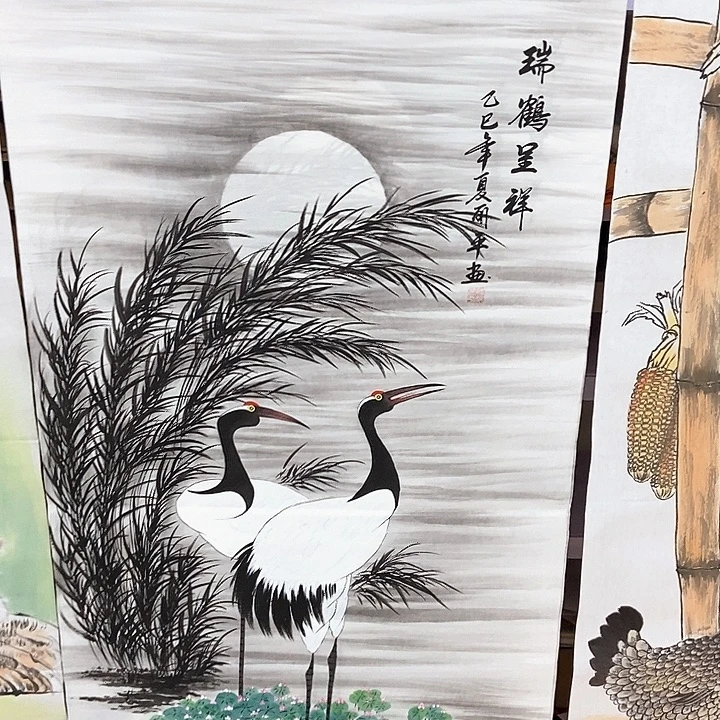 瑞鶴呈祥
乙巳年夏丽平画